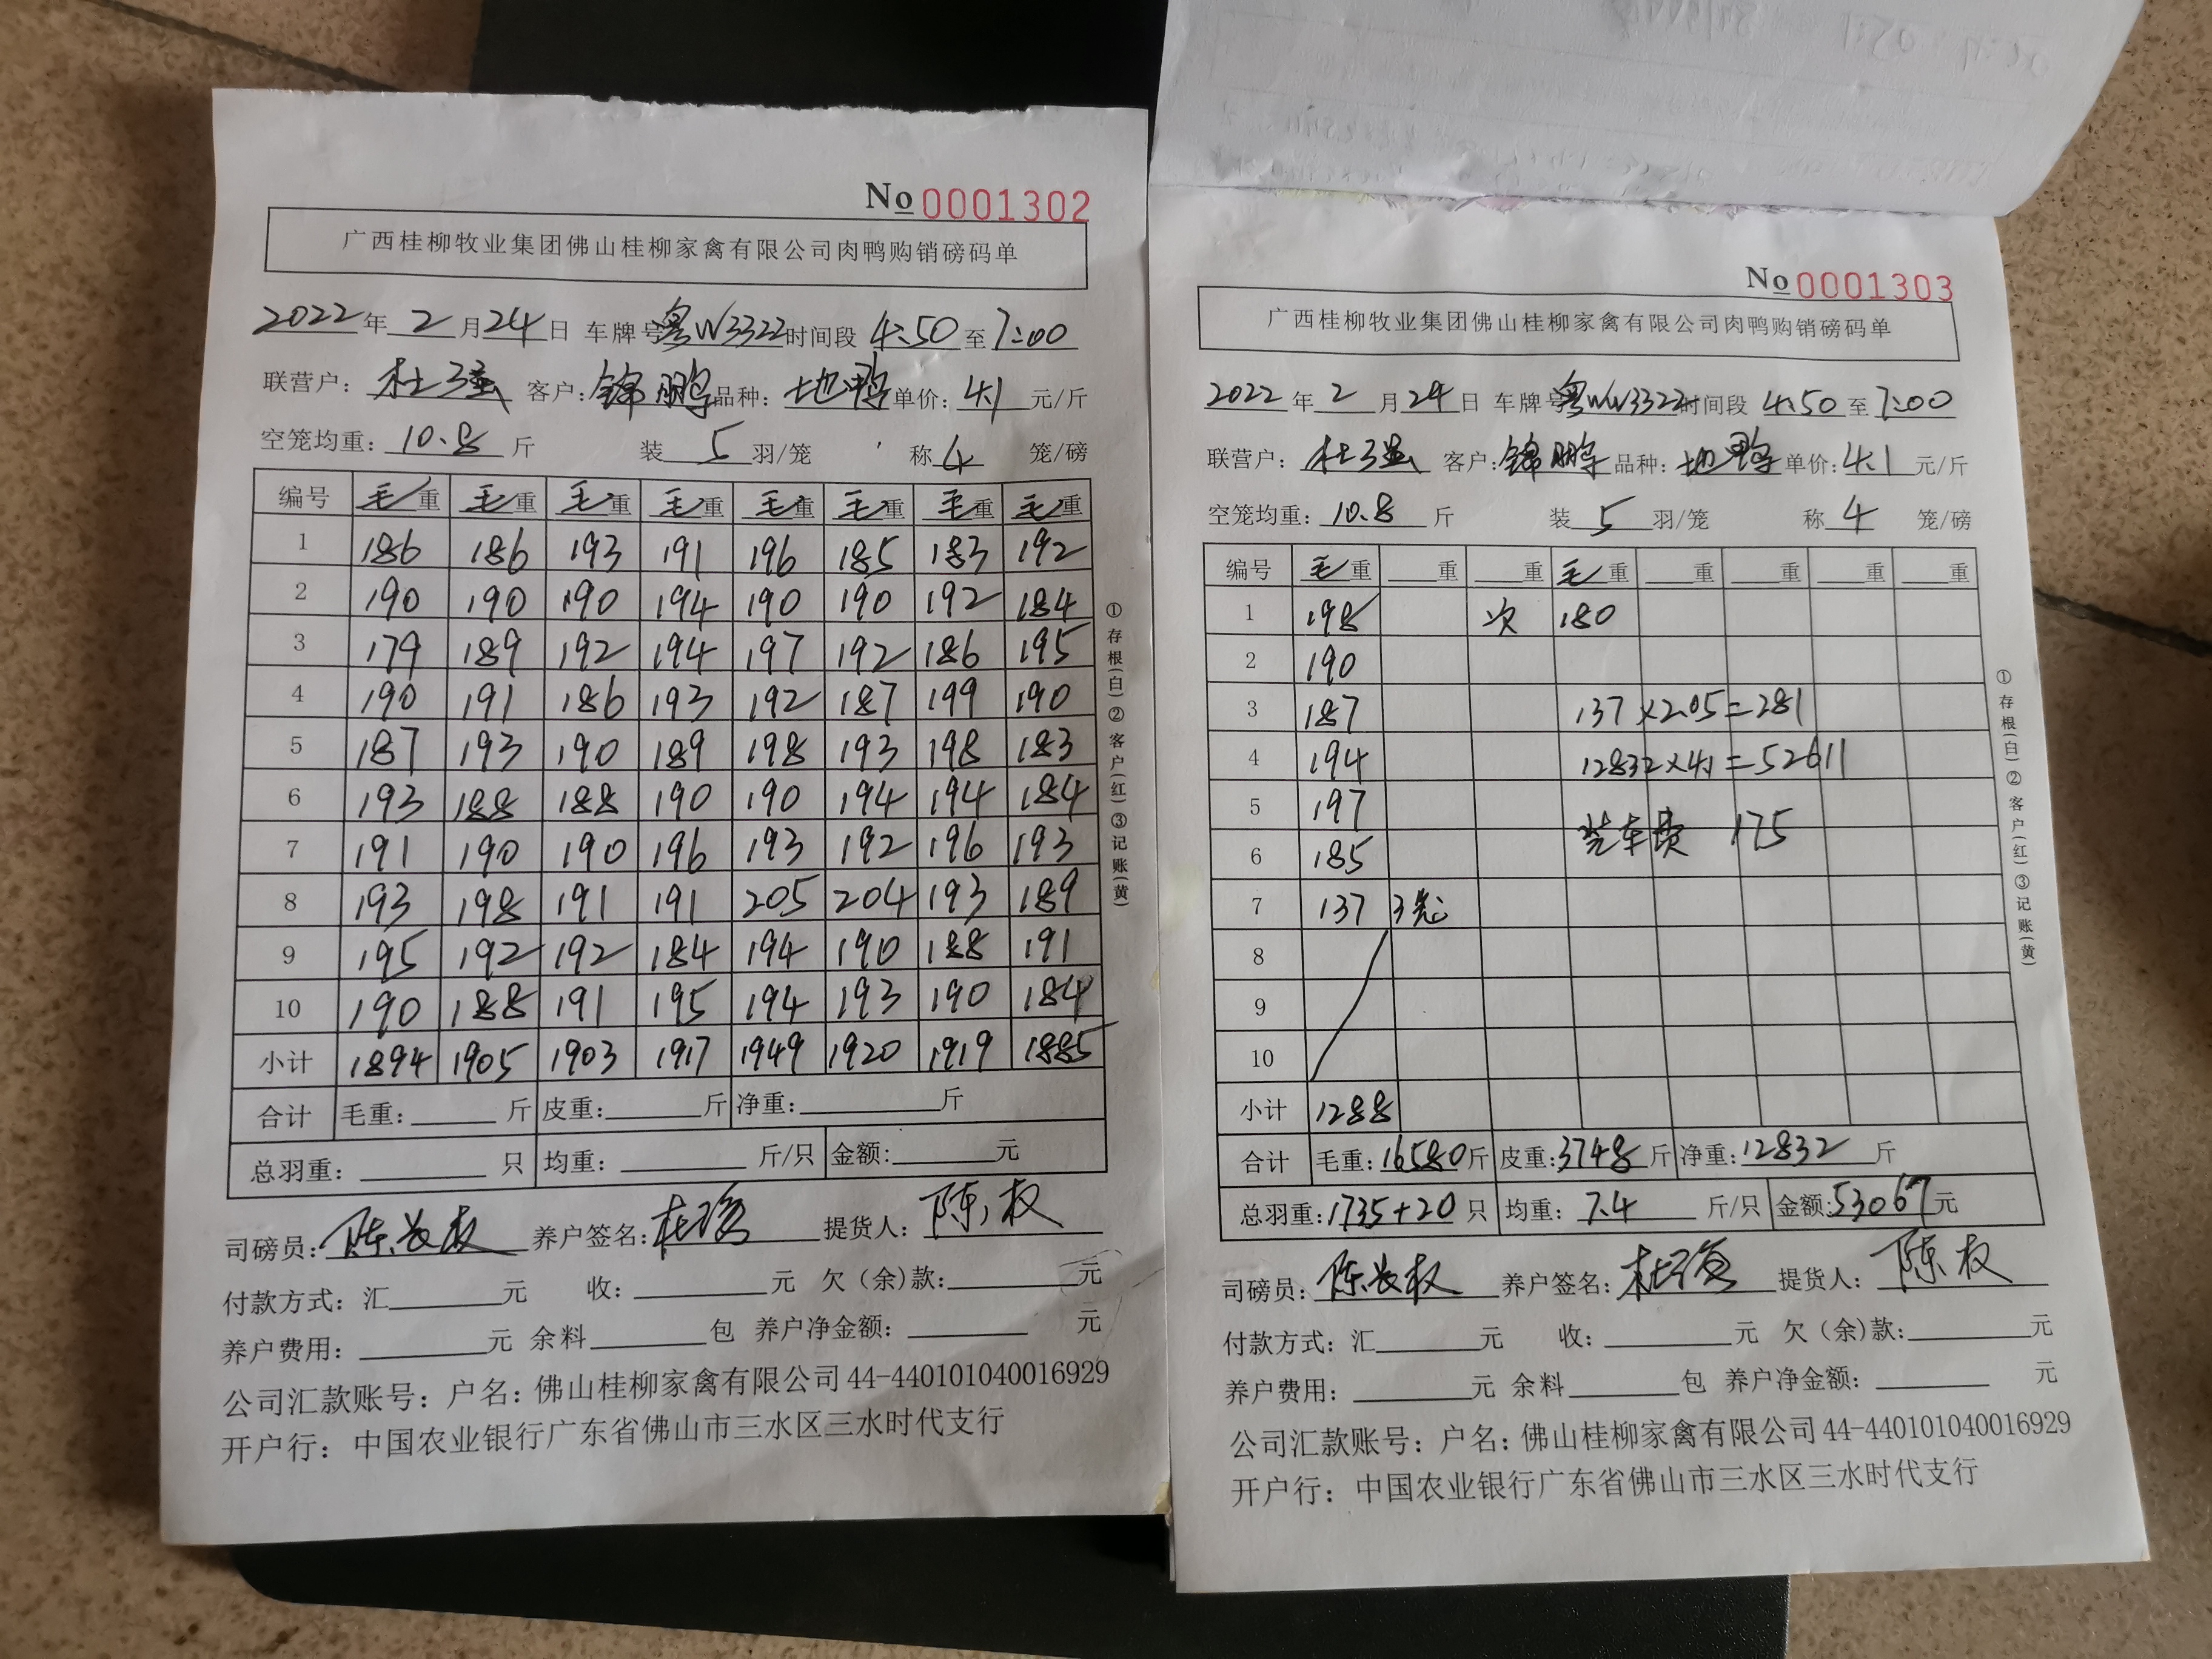 No 0001302
广西桂柳牧业集团佛山桂柳家禽有限公司肉鸭购销磅码单
2022年2月24日 车牌号粤W3322时间段4:50至7:00
联营户：杜强 客户：锦鹏 品种：地鸭 单价：4.1元/斤
空笼均重：10.8斤 装5羽/笼 称4笼/磅
编号 毛重 毛重 毛重 毛重 毛重 毛重 毛重 毛重
1 186 186 193 191 196 185 183 192
2 190 190 190 194 190 190 192 184
3 179 189 192 194 197 192 186 195
4 190 191 186 193 192 187 199 190
5 187 193 190 189 198 193 198 183
6 193 188 188 190 190 194 194 184
7 191 190 190 196 193 192 196 193
8 193 198 191 191 205 204 193 189
9 195 192 192 184 194 190 188 191
10 190 188 191 195 194 193 190 184
小计 1894 1905 1903 1917 1949 1920 1919 1885
合计 毛重：斤 皮重：斤 净重：斤
总羽重：只 均重：斤/只 金额：元
司磅员：陈长权 养户签名：杜强 提货人：陈权
付款方式：汇元 收：元 欠（余）款：元
养户费用：元 余料包 养户净金额：元
公司汇款账号：户名：佛山桂柳家禽有限公司 44-440101040016929
开户行：中国农业银行广东省佛山市三水区三水时代支行
①存根(白)②客户(红)③记账(黄)
No 0001303
广西桂柳牧业集团佛山桂柳家禽有限公司肉鸭购销磅码单
2022年2月24日 车牌号粤W3322时间段4:50至7:00
联营户：杜强 客户：锦鹏 品种：地鸭 单价：4.1元/斤
空笼均重：10.8斤 装5羽/笼 称4笼/磅
编号 毛重 重 重 毛重 重 重 重 重
1 198 次 180
2 190
3 187 137×2.05=281
4 194 12832×4.1=52611
5 197
6 185 装车费 175
7 137 3笼
8
9
10
小计 1288
合计 毛重：16580斤 皮重：3748斤 净重：12832斤
总羽重：1735+20只 均重：7.4斤/只 金额：53067元
司磅员：陈长权 养户签名：杜强 提货人：陈权
付款方式：汇元 收：元 欠（余）款：元
养户费用：元 余料包 养户净金额：元
公司汇款账号：户名：佛山桂柳家禽有限公司 44-440101040016929
开户行：中国农业银行广东省佛山市三水区三水时代支行
①存根(白)②客户(红)③记账(黄)